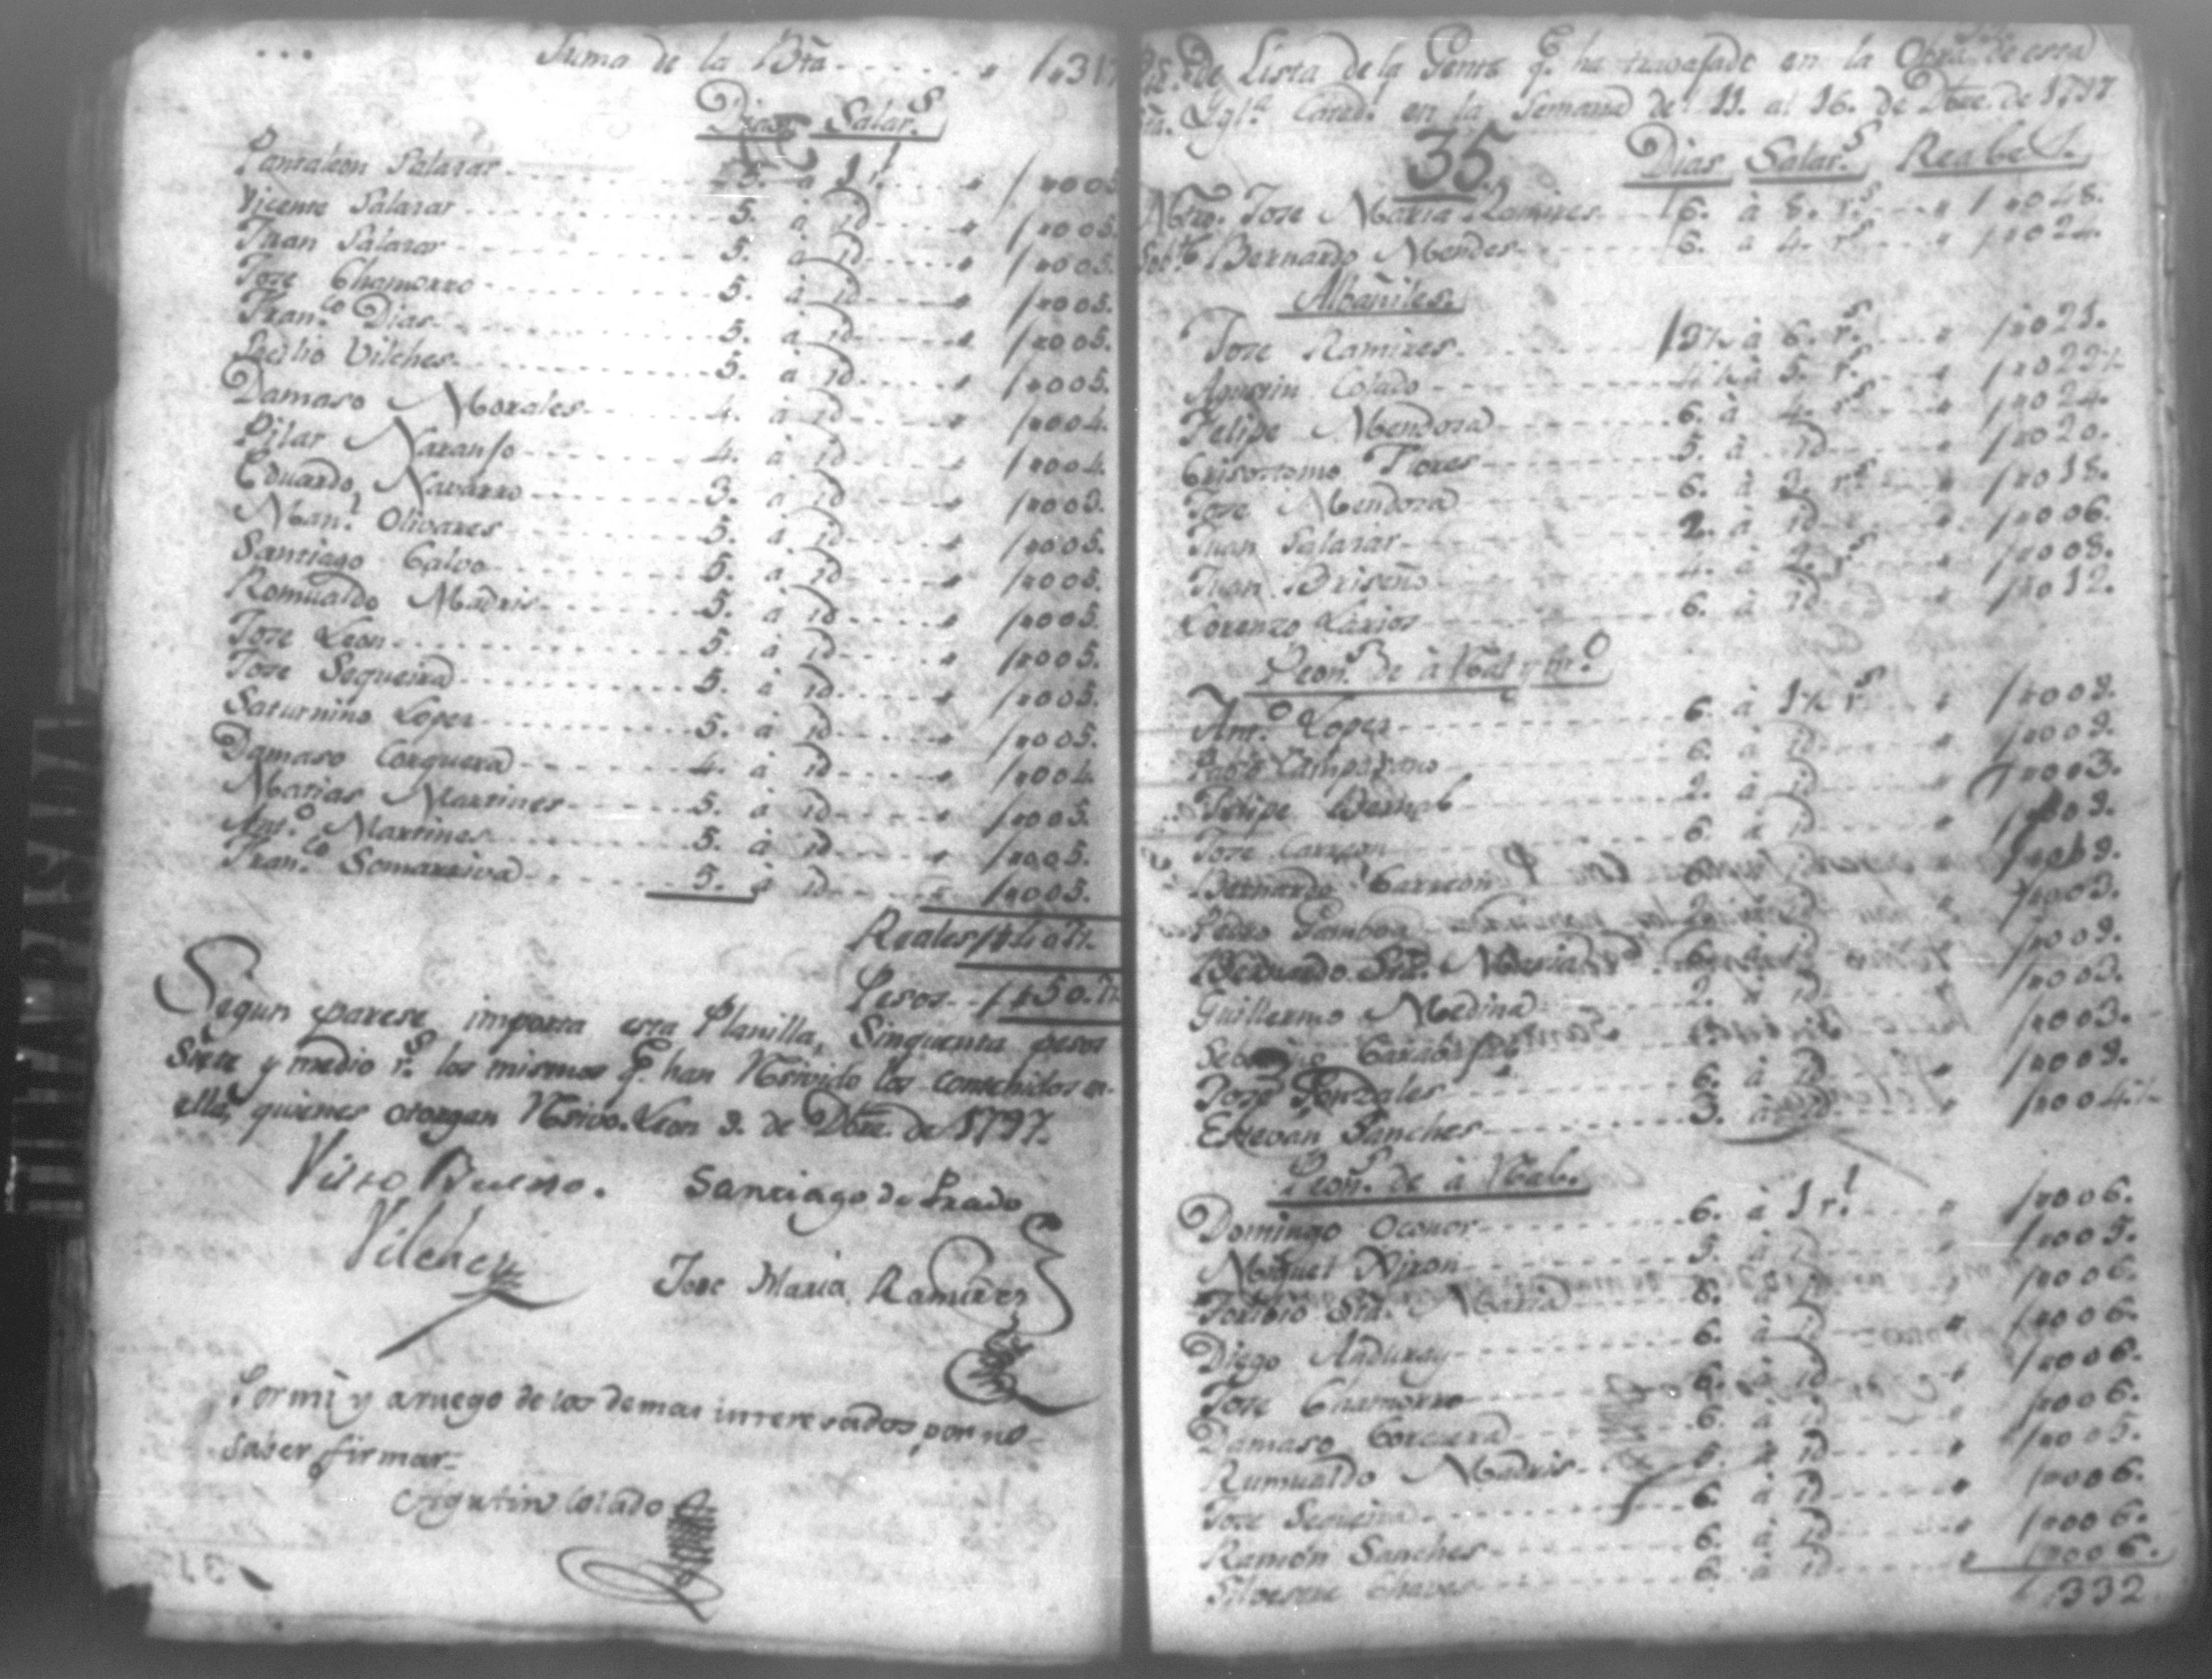 Suma de la Bta. . . . . . . " / " 317
Dias Salar.s
Pantaleon Salazar . . . 5. à 1 r.l . . . " / " 005.
Vicente Salazar . . . 5. à id . . . " / " 005.
Juan Salazar . . . 5. à id . . . " / " 005.
Jose Chamorro . . . 5. à id . . . " / " 005.
Fran.co Dias . . . 5. à id . . . " / " 005.
Vilches . . . 5. à id . . . " / " 005.
Damaso Morales . . . 4. à id . . . " / " 004.
Pilar Naranjo . . . 4. à id . . . " / " 004.
Eduardo Navarro . . . 3. à id . . . " / " 003.
Man.l Olivares . . . 5. à id . . . " / " 005.
Santiago Calvo . . . 5. à id . . . " / " 005.
Romualdo Madris . . . 5. à id . . . " / " 005.
Jose Leon . . . 5. à id . . . " / " 005.
Jose Sequeira . . . 5. à id . . . " / " 005.
Saturnino Lopez . . . 5. à id . . . " / " 005.
Damaso Corquera . . . 4. à id . . . " / " 004.
Matias Martines . . . 5. à id . . . " / " 005.
Ant.o Martines . . . 5. à id . . . " / " 005.
Fran.co Somarriva . . . 5. à id . . . " / " 005.
Reales / " 407½.
Pesos . . / " 50.7½
Segun parese importa esta Planilla, Sinquenta pesos
siete y medio r.s los mismos q.e han Resivido los contenidos en
ella, quienes otorgan Resivo. Leon 9. de Dbre. de 1797.
Vito Bueno. Santiago de Prado
Vilchez
Jose Maria Ramires
Por mi y a ruego de los demas interesados, por no
saber firmar.
Agustin Colado
Lista de la Gente q.e ha travajado en la Obra de esta
Sta. Ygl.a Cated.l en la Semana del 11. al 16. de Dbre. de 1797
35. Dias Salar.s Reales.
Mtro. Jose Maria Ramires . . . 6. à 8. r.s . . . " / " 048.
Bernardo Mendes . . . 6. à 4. r.s . . . " / " 024.
Albañiles.
Jose Ramires . . . à 6. r.s . . . " / " 021.
Agustin Colado . . . 4½ à 5. r.s . . . " / " 022½.
Felipe Mendoza . . . 6. à 4. r.s . . . " / " 024.
Crisostomo Flores . . . 5. à id . . . " / " 020.
Jose Mendoza . . . 6. à 3. r.s . . . " / " 018.
Juan Salazar . . . 2. à id . . . " / " 006.
Juan Briseño . . . 4. à 2. r.s . . . " / " 008.
Lorenzo Larios . . . 6. à id . . . " / " 012.
Peon.s de à Real y m.o
Ant.o Lopez . . . 6. à 1½ r.s . . . " / " 009.
. . . 6. à id . . . " / " 009.
Felipe Bernal . . . 2. à id . . . " / " 003.
Jose Carreon . . . 6. à id . . . " / " 009.
Bernardo Carreon . . . 6. . . . " / " 009.
Pedro Gamboa . . . 2. . . . " / " 003.
Bernardo Sta. Maria . . . 6. à id . . . " / " 009.
Guillermo Medina . . . 2. à id . . . " / " 003.
. . . " / " 003.
Jose Gonzales . . . 6. à id . . . " / " 009.
Estevan Sanches . . . 3. à id . . . " / " 004½.
Peon.s de à Real.
Domingo Oconor . . . 6. à 1 r.l . . . " / " 006.
Miguel Jiron . . . 5. à id . . . " / " 005.
Toribio Sta. Maria . . . 6. à id . . . " / " 006.
Diego Anduray . . . 6. à id . . . " / " 006.
Jose Chamorro . . . 6. à id . . . " / " 006.
Damaso Corquera . . . 6. à id . . . " / " 006.
Rumualdo Madris . . . 5. à id . . . " / " 005.
Jose Sequeira . . . 6. à id . . . " / " 006.
Ramón Sanches . . . 6. à id . . . " / " 006.
Silvestre Chaves . . . 6. à id . . . " / " 006.
/ " 332